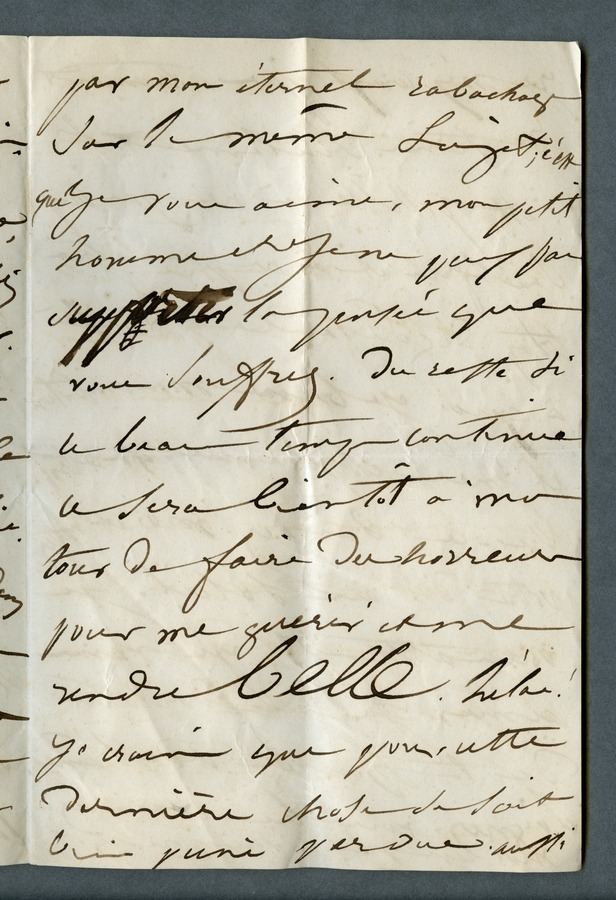 par mon éternel rabachage
sur le même sujet; c'est
que je vous aime, mon petit
homme et que je ne puis pas
supporter la pensée que
vous souffrez. Du reste si
ce beau temps continue
ce sera bientôt à mon
tour de faire des horreurs
pour me guérir et me
rendre belle. Hélas!
je crains que pour cette
dernière chose ce soit
peine perdue. aussi